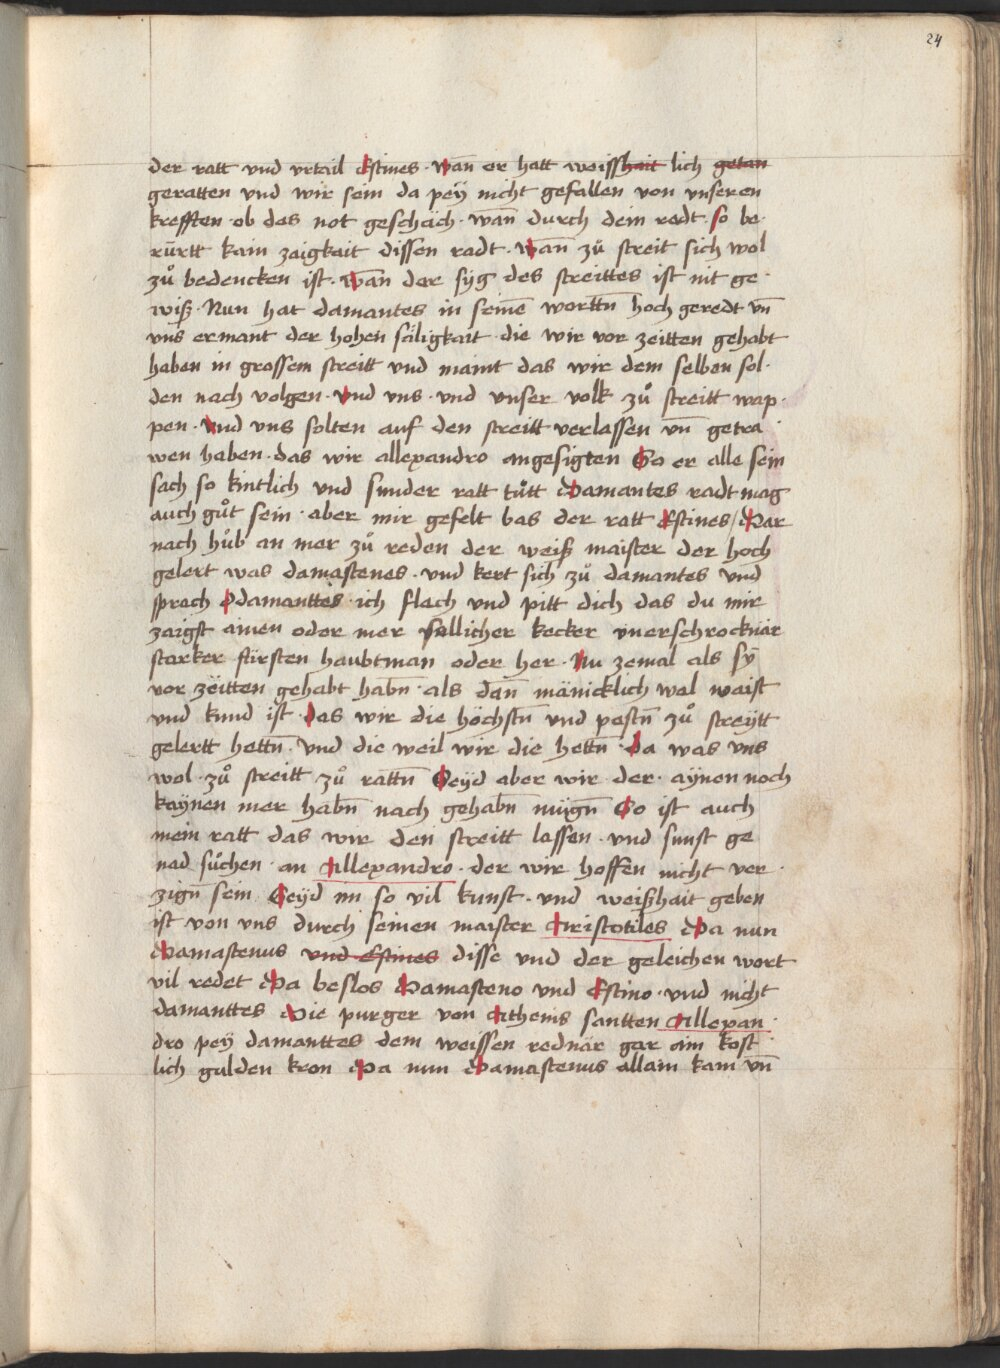 24
der ratt vnd vrtail Estines · wan̄ er hatt weisshait lich getan
geratten vnd wir sein da peÿ nicht gefallen von vnseren
krefften · ob das not geschäch · wan̄ durch dem redt · so be·
rūrtt kain zaigkait dissen radt · wan̄ zů streit sich wol
zů bedencken ist · wan̄ der sÿg des streittes ist nit ge·
wiß · Nun hat damantes in seinē worttn̄ hoch geredt vn̄
vns ermant der hohen säligkait die wir vor zeitten gehabt
haben in grossem streitt vnd maint das wir dem selben sol·
den nach volgen · vnd vns · vnd vnser volk zů streitt wap·
pen · vnd vns solten auf den streitt verlassen vn̄ getra·
wen haben · das wir allexandro angesigten So er alle sein
sach so kintlich vnd sunder ratt tůtt Damantes radt mag
auch gůt sein · aber mir gefelt bas der ratt Estines / Dar
nach hůb an mer zů reden der weiß maister der hoch
gelert was damastenes · vnd kert sich zů damantes vnd
sprach O damanttes · ich flech vnd pitt dich das du mir
zaigst ainen oder mer sällicher kecker vnerschrocknär
starker fürsten haubtman oder her · Nu zemal als sÿ
vor zëitten gehabt habn̄ · als dan̄ mänicklich wol waist
vnd kund ist · das wir die höchstn̄ vnd pestn̄ zů streÿtt
gelertt hettn̄ · vnd die weil wir die hettn̄ · Da was vns
wol · zů streitt zů rattn̄ Seÿd aber wir der · aÿnen noch
kaÿnen mer habn̄ nach gehabn̄ mügn̄ So ist auch
mein ratt das wir den streitt lassen · vnd sunst ge
nad sůchen · an Allexandro · der wir hoffen nicht ver·
zign̄ sein Seÿd im so vil kunst · vnd weißhait geben
ist von vns durch seinen maister Aristotiles Da nun
Damastenus vnd Estines disse vnd der geleichen wort
vil redet Da beslos Damasteno vnd Estino · vnd nicht
damanttes Die purger von Athenis santten Allexan·
dro peÿ damanttes dem weissen rednär gar ain kost
lich gulden kron Da nun Damastenus allain kam vn̄